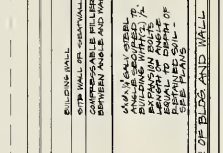 BUILDING WALL
SITE WALL OR SEATWALL
COMPRESSABLE FILLER
BETWEEN ANGLE AND WA
GALV. STEEL
ANGLE SECURED TO
BUILDING WITH (2) 1/2
EXPANSION BOLTS
LENGTH OF ANGLE
EQUALS DEPTH OF
RETAINED SOIL -
SEE PLANS
OF BLDG. AND WALL